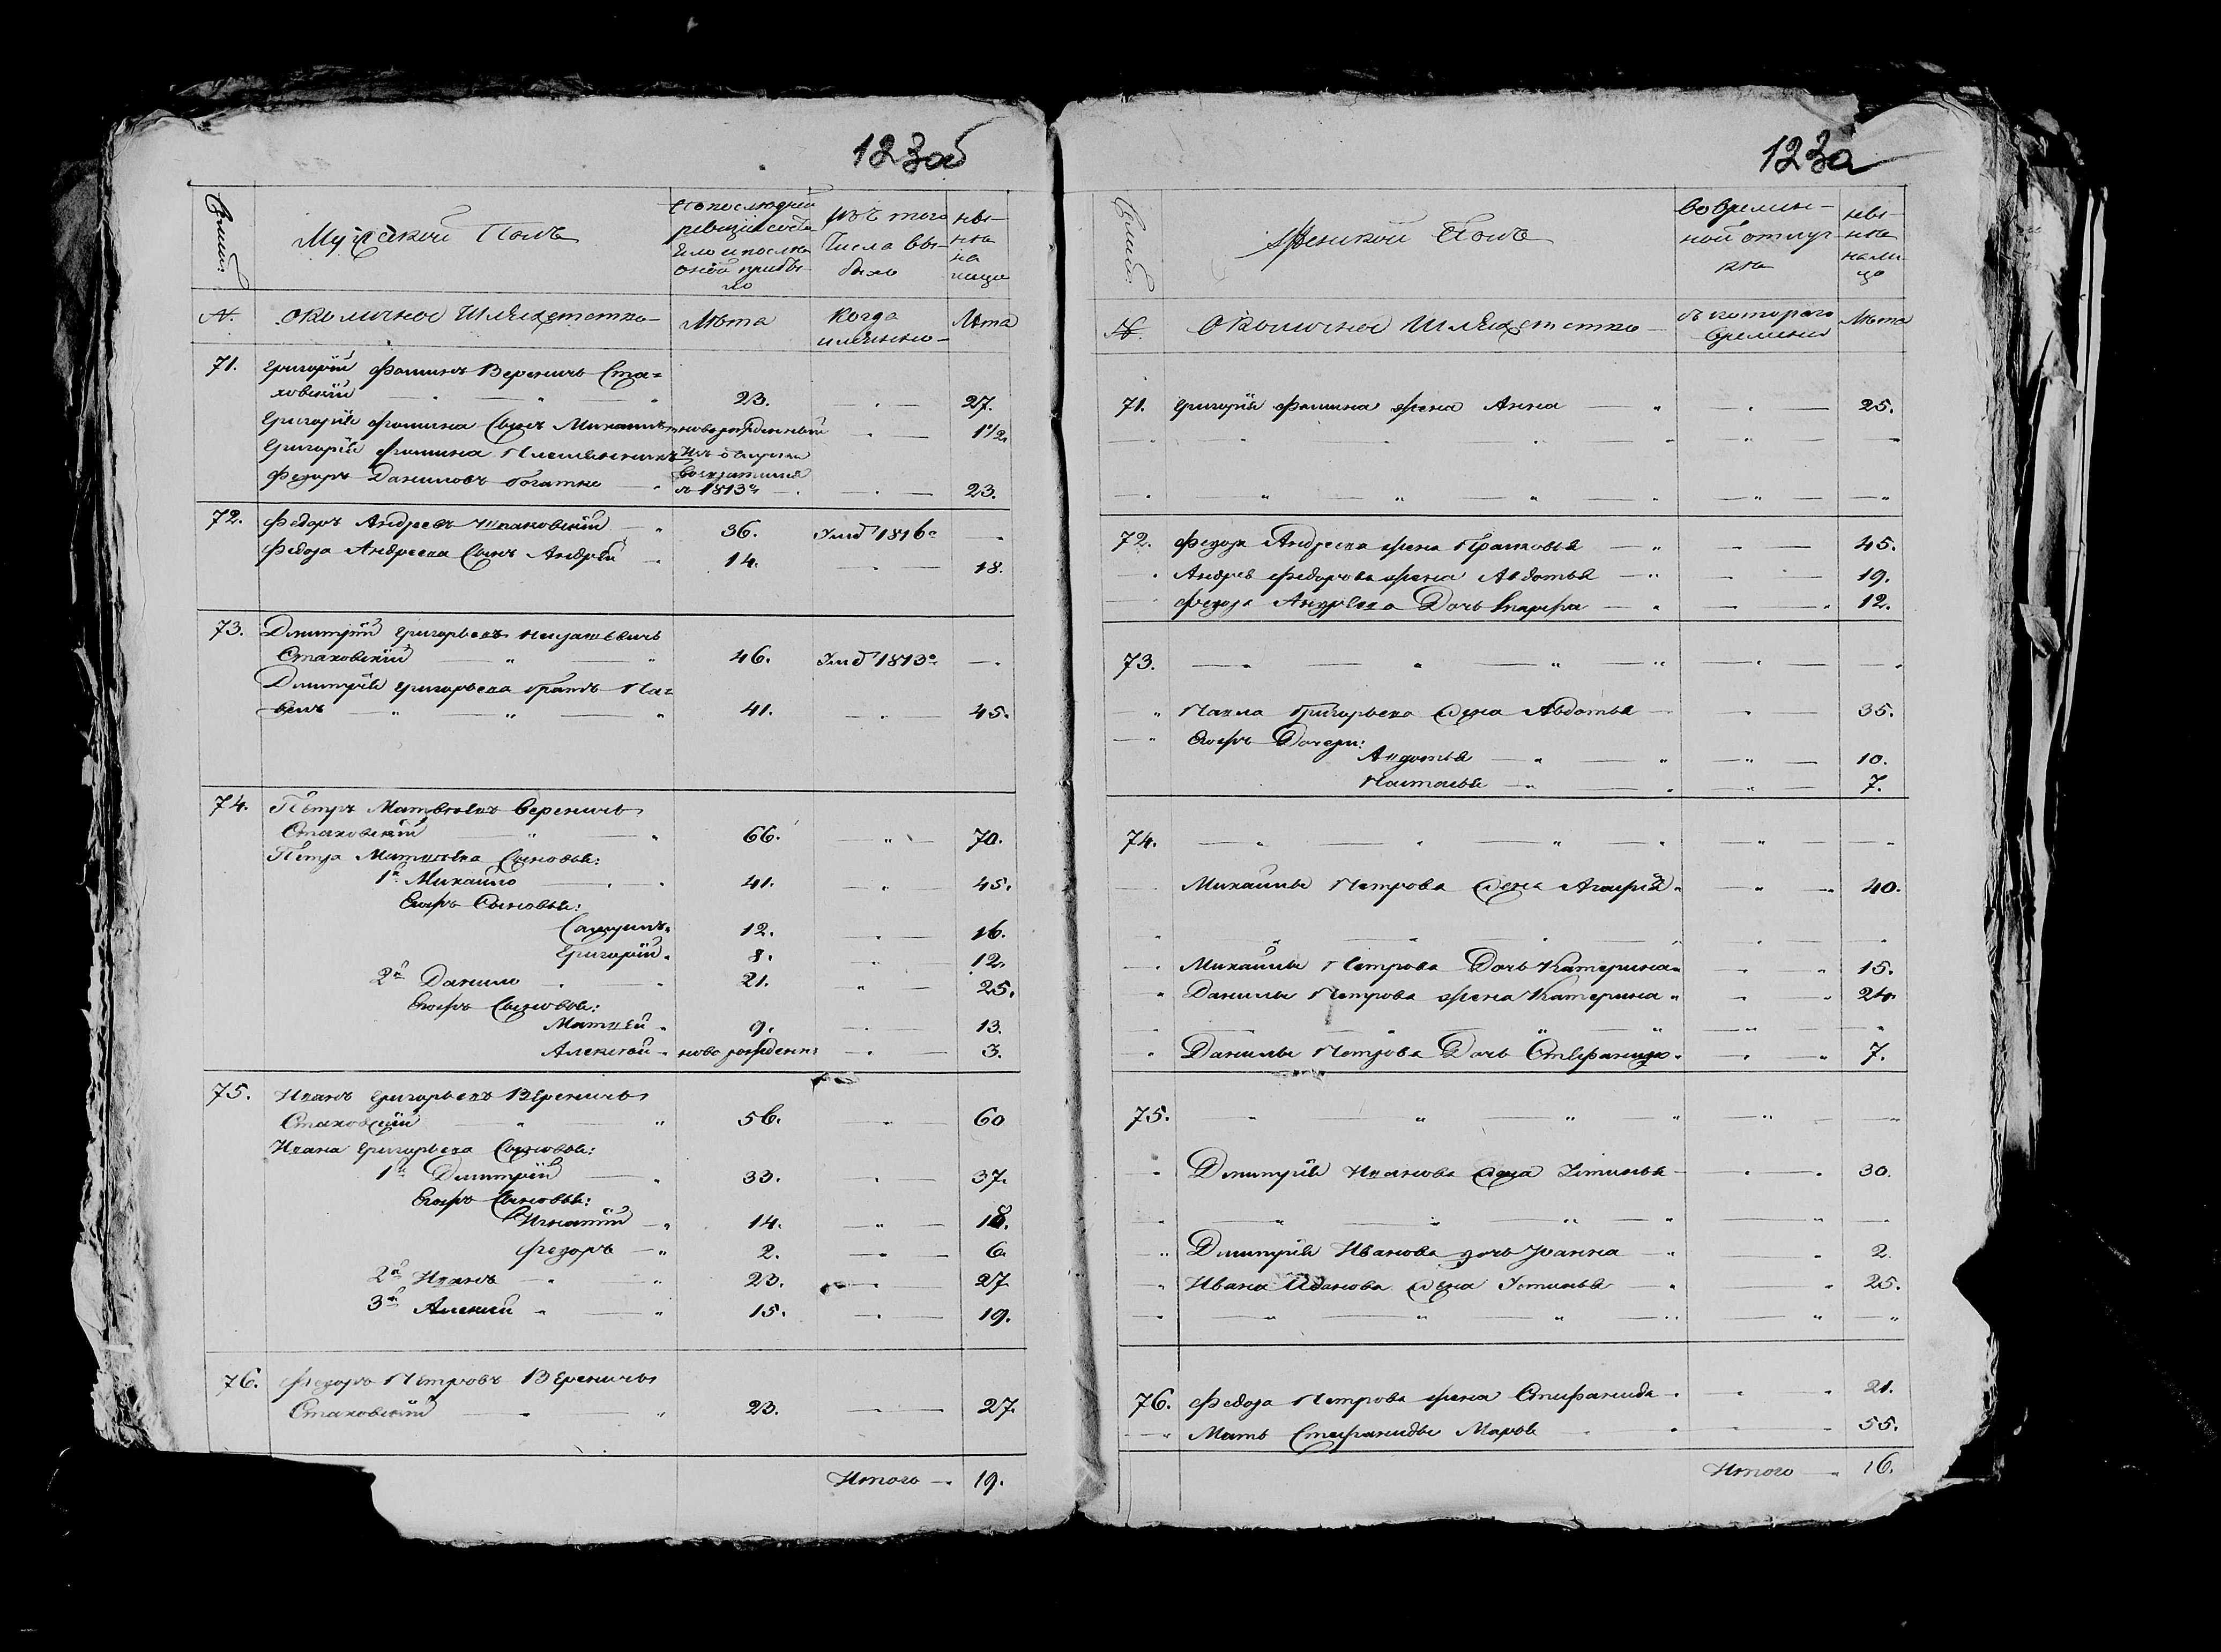 123об
Семьи.
Мужеской Полъ
По последней
ревизiи состо
яло и после
оной прибы-
ло
Изъ того
Числа вы-
было
ны-
не
на
лицо
№
околичное Шляхетство
Лѣта
Когда
именно
Лѣта
71. Григорiй Фоминъ Вереничъ Ста=
ховскiй 23. 27.
Григорiя Фомина Сынъ Михаилъ новорожденный 1 1/2
Григорiя Фомина Племянникъ Изъ
Федоръ Даниловъ
в 1813 г. 23.
72. Федоръ Андреевъ 36. Умеръ 1816 г.
Федора Андреева Сынъ Андрей 14. 18.
73. Дмитрiй Григорьевъ
Стаховскiй 46. Умеръ 1813 г.
Дмитрiя Григорьева братъ Па=
велъ 41. 45.
74. Петръ Матвѣевъ Вереничъ
Стаховскiй 66. 70.
Петра Матвѣева Сыновья:
1й Михайло 41. 45.
Егожъ Сыновья:
Самуилъ 12. 16.
Григорiй 8. 12.
2й Данило 21. 25.
Егожъ Сыновья:
Матвей 9. 13.
Алексей новорожденн: 3.
75. Иванъ Григорьевъ Вереничъ
Стаховскiй 56. 60
Ивана Григорьева Сыновья:
1й Дмитрiй 33. 37.
Егожъ Сыновья:
Игнатiй 14. 18.
Федоръ 2. 6.
2й Иванъ 23. 27
3й Алексей 15. 19.
76. Федоръ Петровъ Вереничъ
Стаховскiй 23. 27.
Итого 19.
123а
Семьи.
Женской Полъ
Во времен-
ной отлуч-
ке
ны-
не
нали-
цо
№
околичное Шляхетство
съ котораго
времени
Лѣта
71. Григорiя Фомина жена Анна 25.
72. Федора Андреева жена Прасковья 45.
Андрея Федорова жена Авдотья 19.
Федора Андреева Дочь Марфа 12.
73.
Павла Григорьева жена Авдотья 35.
Егожъ Дочери:
Авдотья 10.
Наталья 7.
74.
Михайлы Петрова жена Агафiя 40.
Михайлы Петрова Дочь Катерина 15.
Данилы Петрова жена Катерина 24.
Данилы Петрова Дочь Стефанида 7.
75.
Дмитрiя Иванова жена Устинья 30.
Дмитрiя Иванова дочь Иванна 2.
Ивана Иванова жена Устинья 25.
76. Федора Петрова жена Стефанида 21.
Мать Стефаниды Марья 55.
Итого 16.